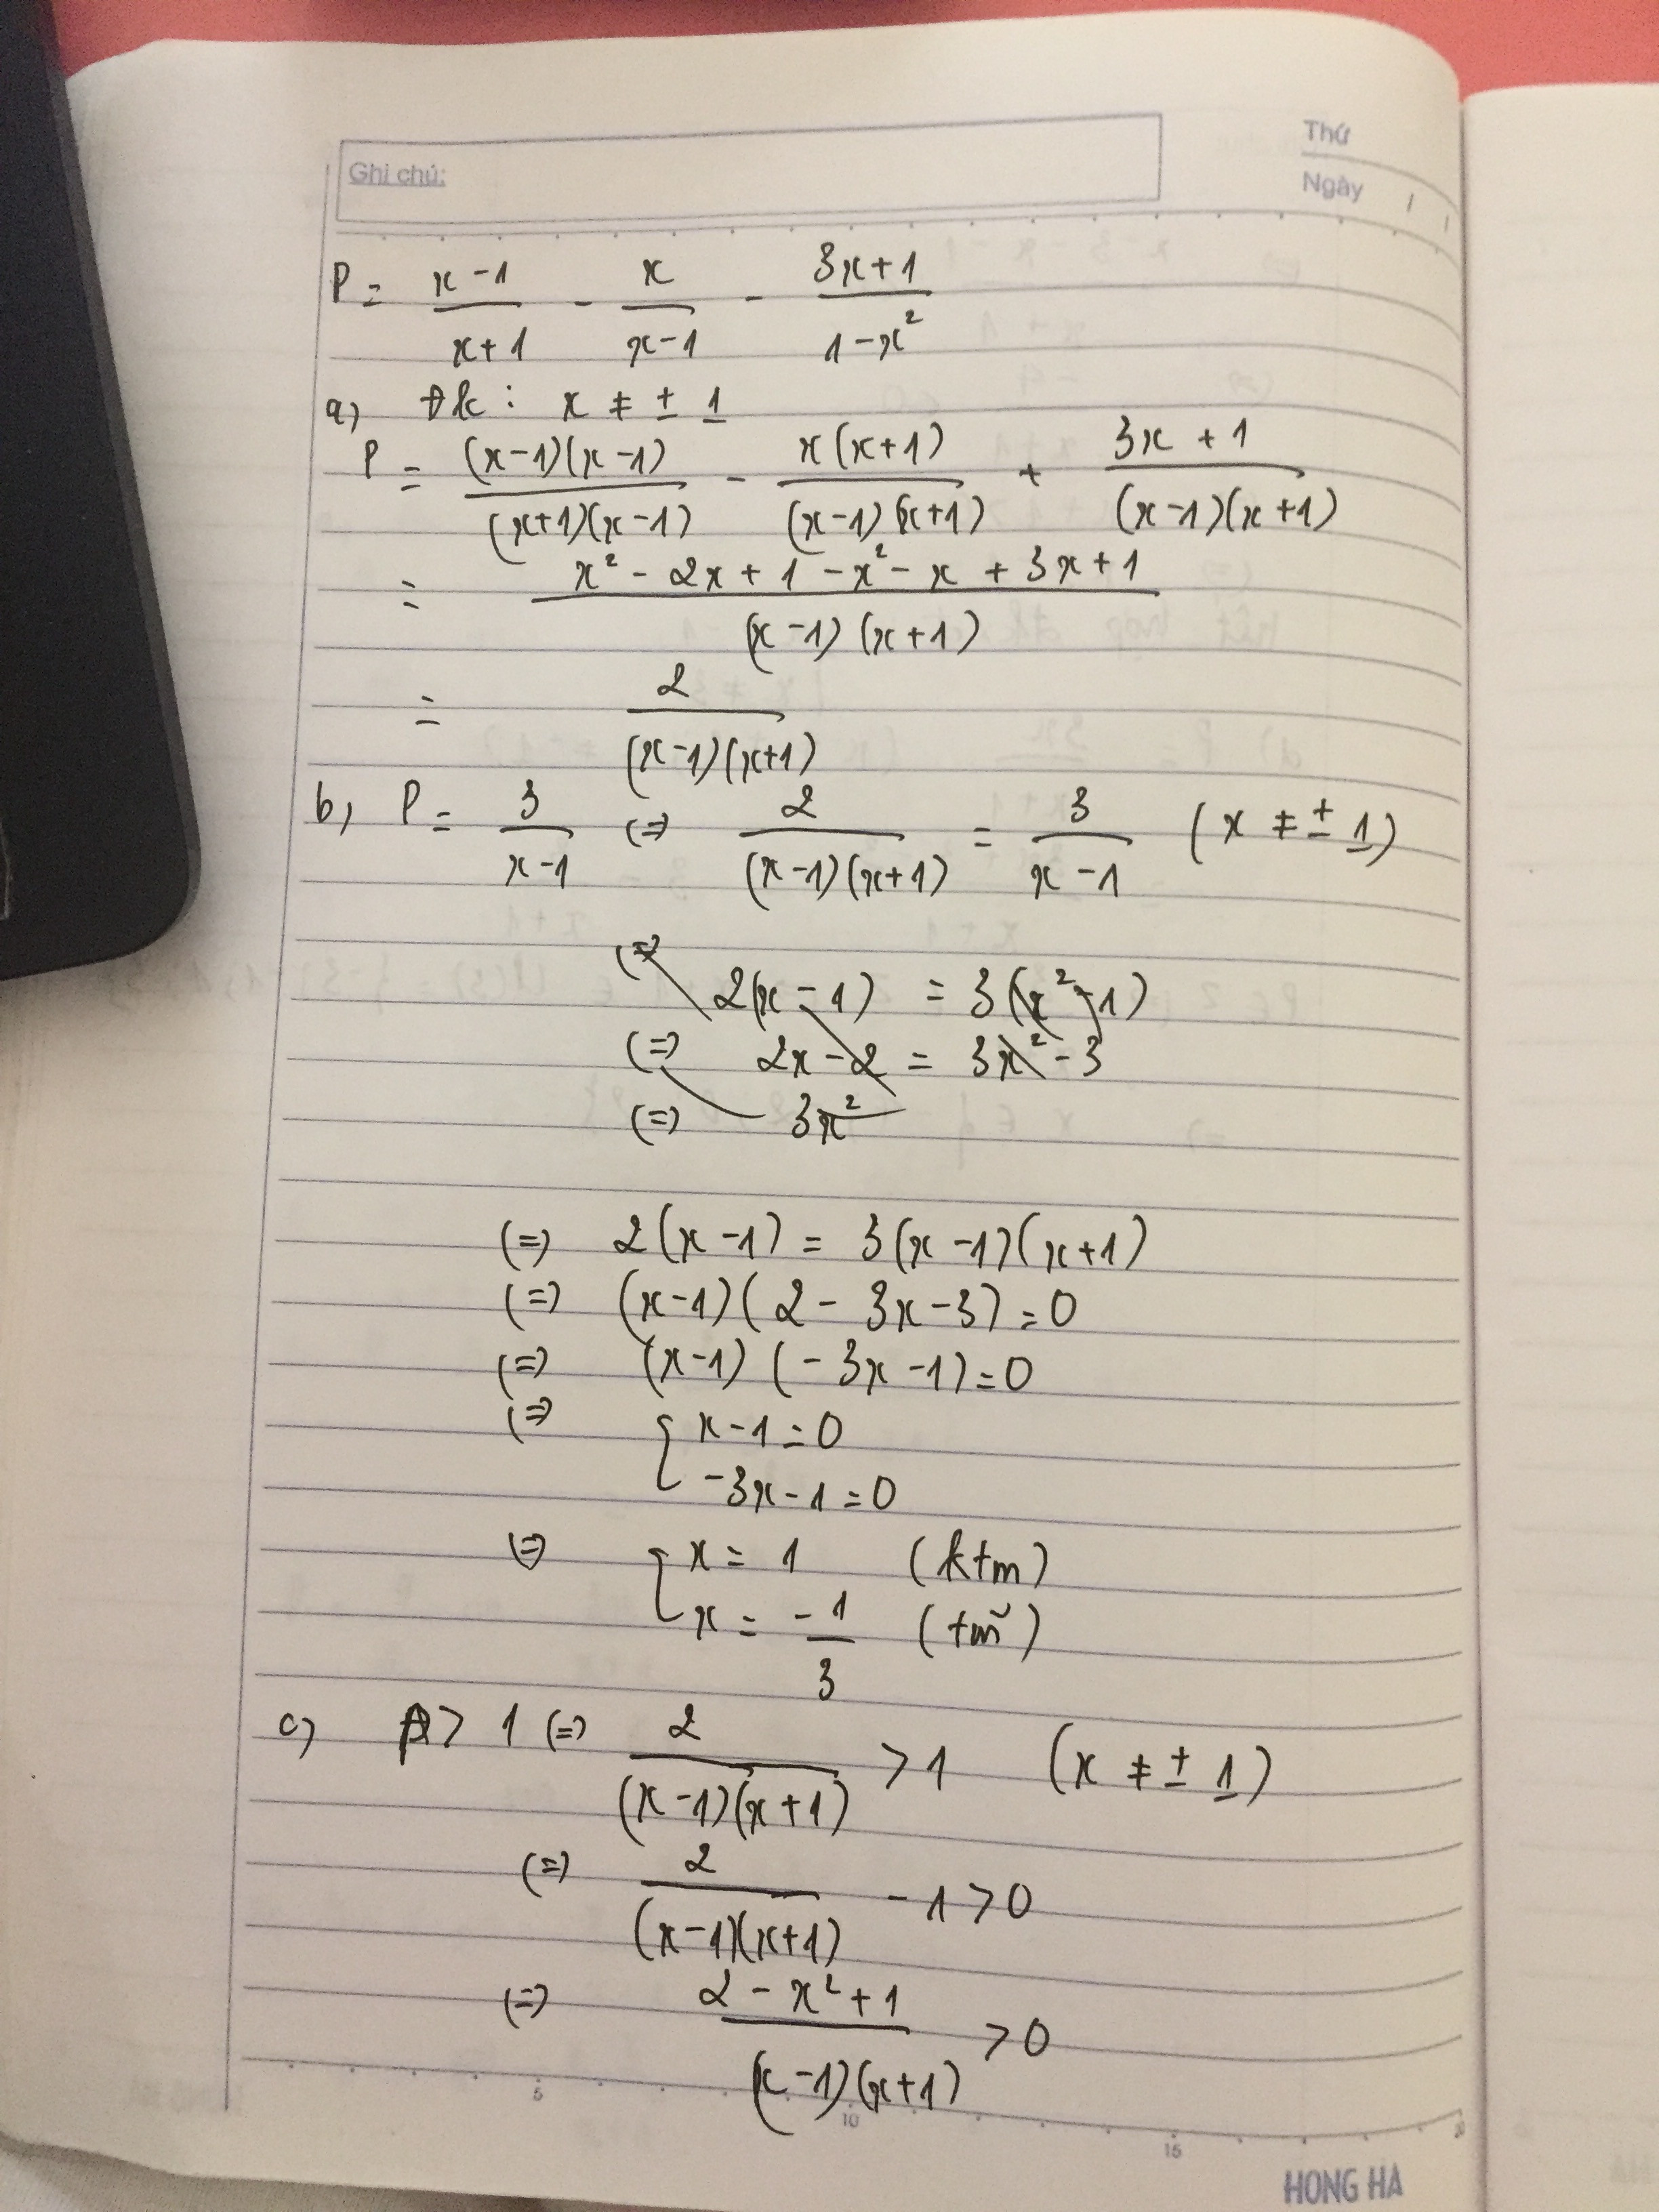 Thứ
Ghi chú:
Ngày / /
P = (x-1)/(x+1) - x/(x-1) - (3x+1)/(1-x²)
a) đk : x ≠ ± 1
P = (x-1)(x-1)/(x+1)(x-1) - x(x+1)/(x-1)(x+1) + (3x+1)/(x-1)(x+1)
= (x² - 2x + 1 - x² - x + 3x + 1)/(x-1)(x+1)
= 2/(x-1)(x+1)
b) P = 3/(x-1) (=) 2/(x-1)(x+1) = 3/(x-1) (x ≠ ± 1)
(=) 2(x-1) = 3(x²-1)
(=) 2x - 2 = 3x² - 3
(=) 3x²
(=) 2(x-1) = 3(x-1)(x+1)
(=) (x-1)(2 - 3x - 3) = 0
(=) (x-1)(-3x-1) = 0
(=) [ x-1 = 0
-3x-1 = 0
(=) [ x = 1 (ktm)
x = -1/3 (tm)
c) P > 1 (=) 2/(x-1)(x+1) > 1 (x ≠ ± 1)
(=) 2/(x-1)(x+1) - 1 > 0
(=) (2 - x² + 1)/(x-1)(x+1) > 0
5 10 15
HONG HA